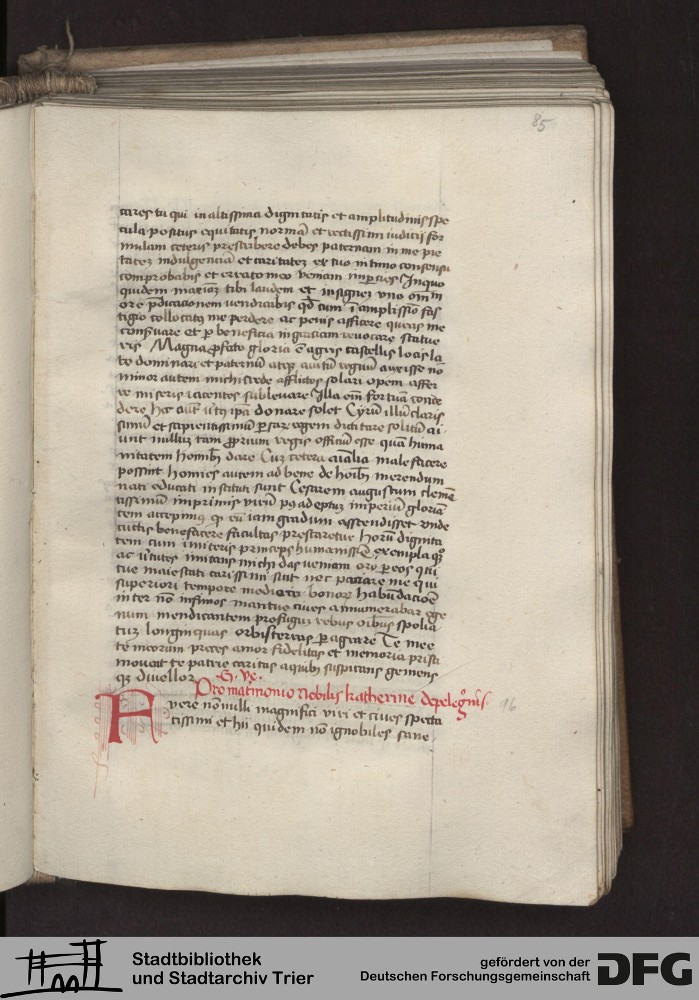 85
cares tu qui in altissima dignitatis et amplitudinis spe
cula positus equitatis normā et rectissimi iudicij for
mulam ceteris prescribere debes paternam in me pie
tatez indulgenciā et caritatez ex tuo intimo consensu
comprobabis et errato meo veniam imparties In quo
quidem maximā tibi laudem et insignez vno omniū
ore pdicacionem vendicabis qd cum ī amplissīo fas
tigio collocatq me perdere ac penis afficere queas me
conservare et p beneficia in graciam revocare statue
ris Magna profcō gloria ē agris castellis locis la
te dominari et paternū atqz avitū regnū auxisse nō
minor autem michi crede afflictos solari opem affer
re miseris iacentes sublevare Illa em fortuna conce
dere hec aut vtq ipa donare solet Cyrū illū claris
simū et sapientissimū persaz regem dictitare solitū ai
unt nullum tam proprium regis officiū esse quā huma
nitatem homib dare Cuz cetera aīalia male facere
possint homies autem ad bene de hoib merendum
nati educati instituti sunt Cesarem augustum cleme
tissimū imprimis virū pq adeptus imperiū gloriā
tem accepimq qz eū iam gradum ascendisset vnde
cuctis benefacere facultas prestaretur horū dignita
tem cum ī miteris princeps humanissīe exempla qz
ac vtutes imitans michi das veniam oro p eos qui
tue maiestati carissimi sunt nec patiare me qui
superiori tempore mediocri bonorz habūdacioē
inter nō infimos mantue cives annumerabar ege
num mendicantem profugū rebus oibus spolia
tuz longinquas orbis terras pagrare Te mee
te meorum preces amor fidelitas et memoria prisci
moveāt te patrie caritas a quibus suspirans gemens
qz divellor G. Ve.
Pro matrimonio nobilis katherine de pelegnis. 96
Avere nōnulli magnifici viri et cives specta
tissimi et hii quidem nō ignobiles sane
Stadtbibliothek
und Stadtarchiv Trier
gefördert von der
Deutschen Forschungsgemeinschaft
DFG